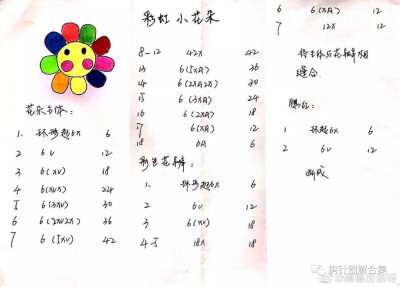 彩虹小花朵
花朵主体:
1. 环形起6X 6
2 6V 12
3 6(XV) 18
4 6(XVX) 24
5 6(3XV) 30
6 6(2XV2X) 36
7 6(5XV) 42
8-12 42X 42
13 6(5XA) 36
14 6(2XA2X) 30
15 6(3XA) 24
16 6(2XA) 18
17 6(XA) 12
18 6A 6
彩色花瓣:
1. 环形起6X 6
2 6V 12
3 6(XV) 18
4.5 18X 18
6 6(XA) 12
7 12X 12
将主体与花瓣用
缝合.
腮红:
1 环形起6X 6
2 6V 12
断线
钩针图解合集